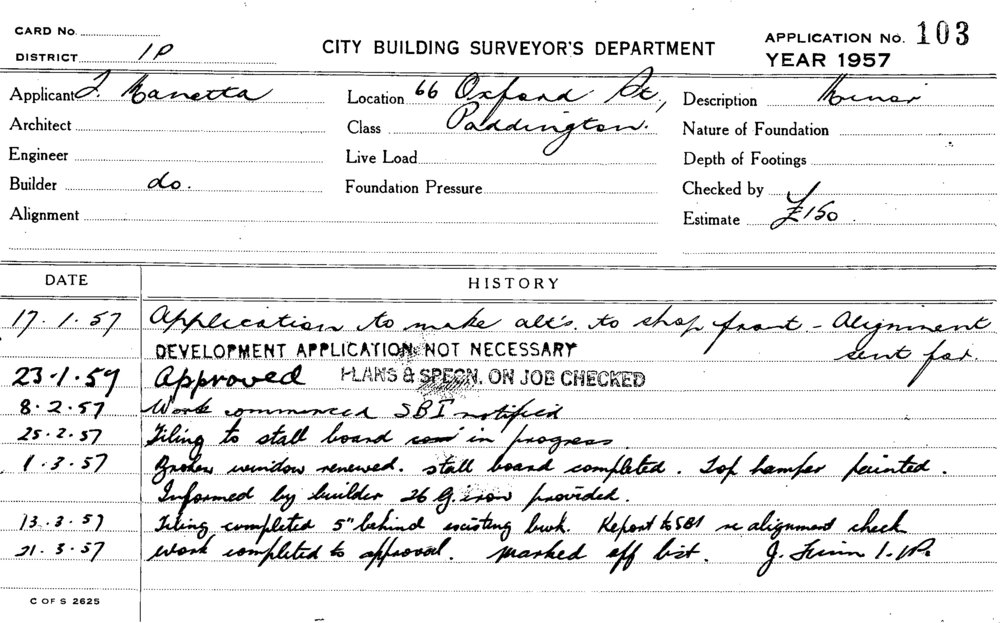 CARD No.
DISTRICT 1P
CITY BUILDING SURVEYOR'S DEPARTMENT
APPLICATION No. 103
YEAR 1957
Applicant J. Manetta Location 66 Oxford St, Description Minor
Architect Class Paddington. Nature of Foundation
Engineer Live Load Depth of Footings
Builder do. Foundation Pressure Checked by
Alignment Estimate £150
DATE HISTORY
17.1.57 Application to make alt's. to shop front - Alignment
DEVELOPMENT APPLICATION NOT NECESSARY sent for.
23.1.57 Approved PLANS & SPECN. ON JOB CHECKED
8.2.57 Work commenced SBI notified
25.2.57 Tiling to stall board in progress
1.3.57 Broken window renewed. Stall board completed. Top hamper painted.
Informed by builder 26 G. iron provided.
13.3.57 Tiling completed 5" behind existing bwk. Report to SBI re alignment check
21.3.57 Work completed to approval. Marked off list. J. 1.P.
C OF S 2625